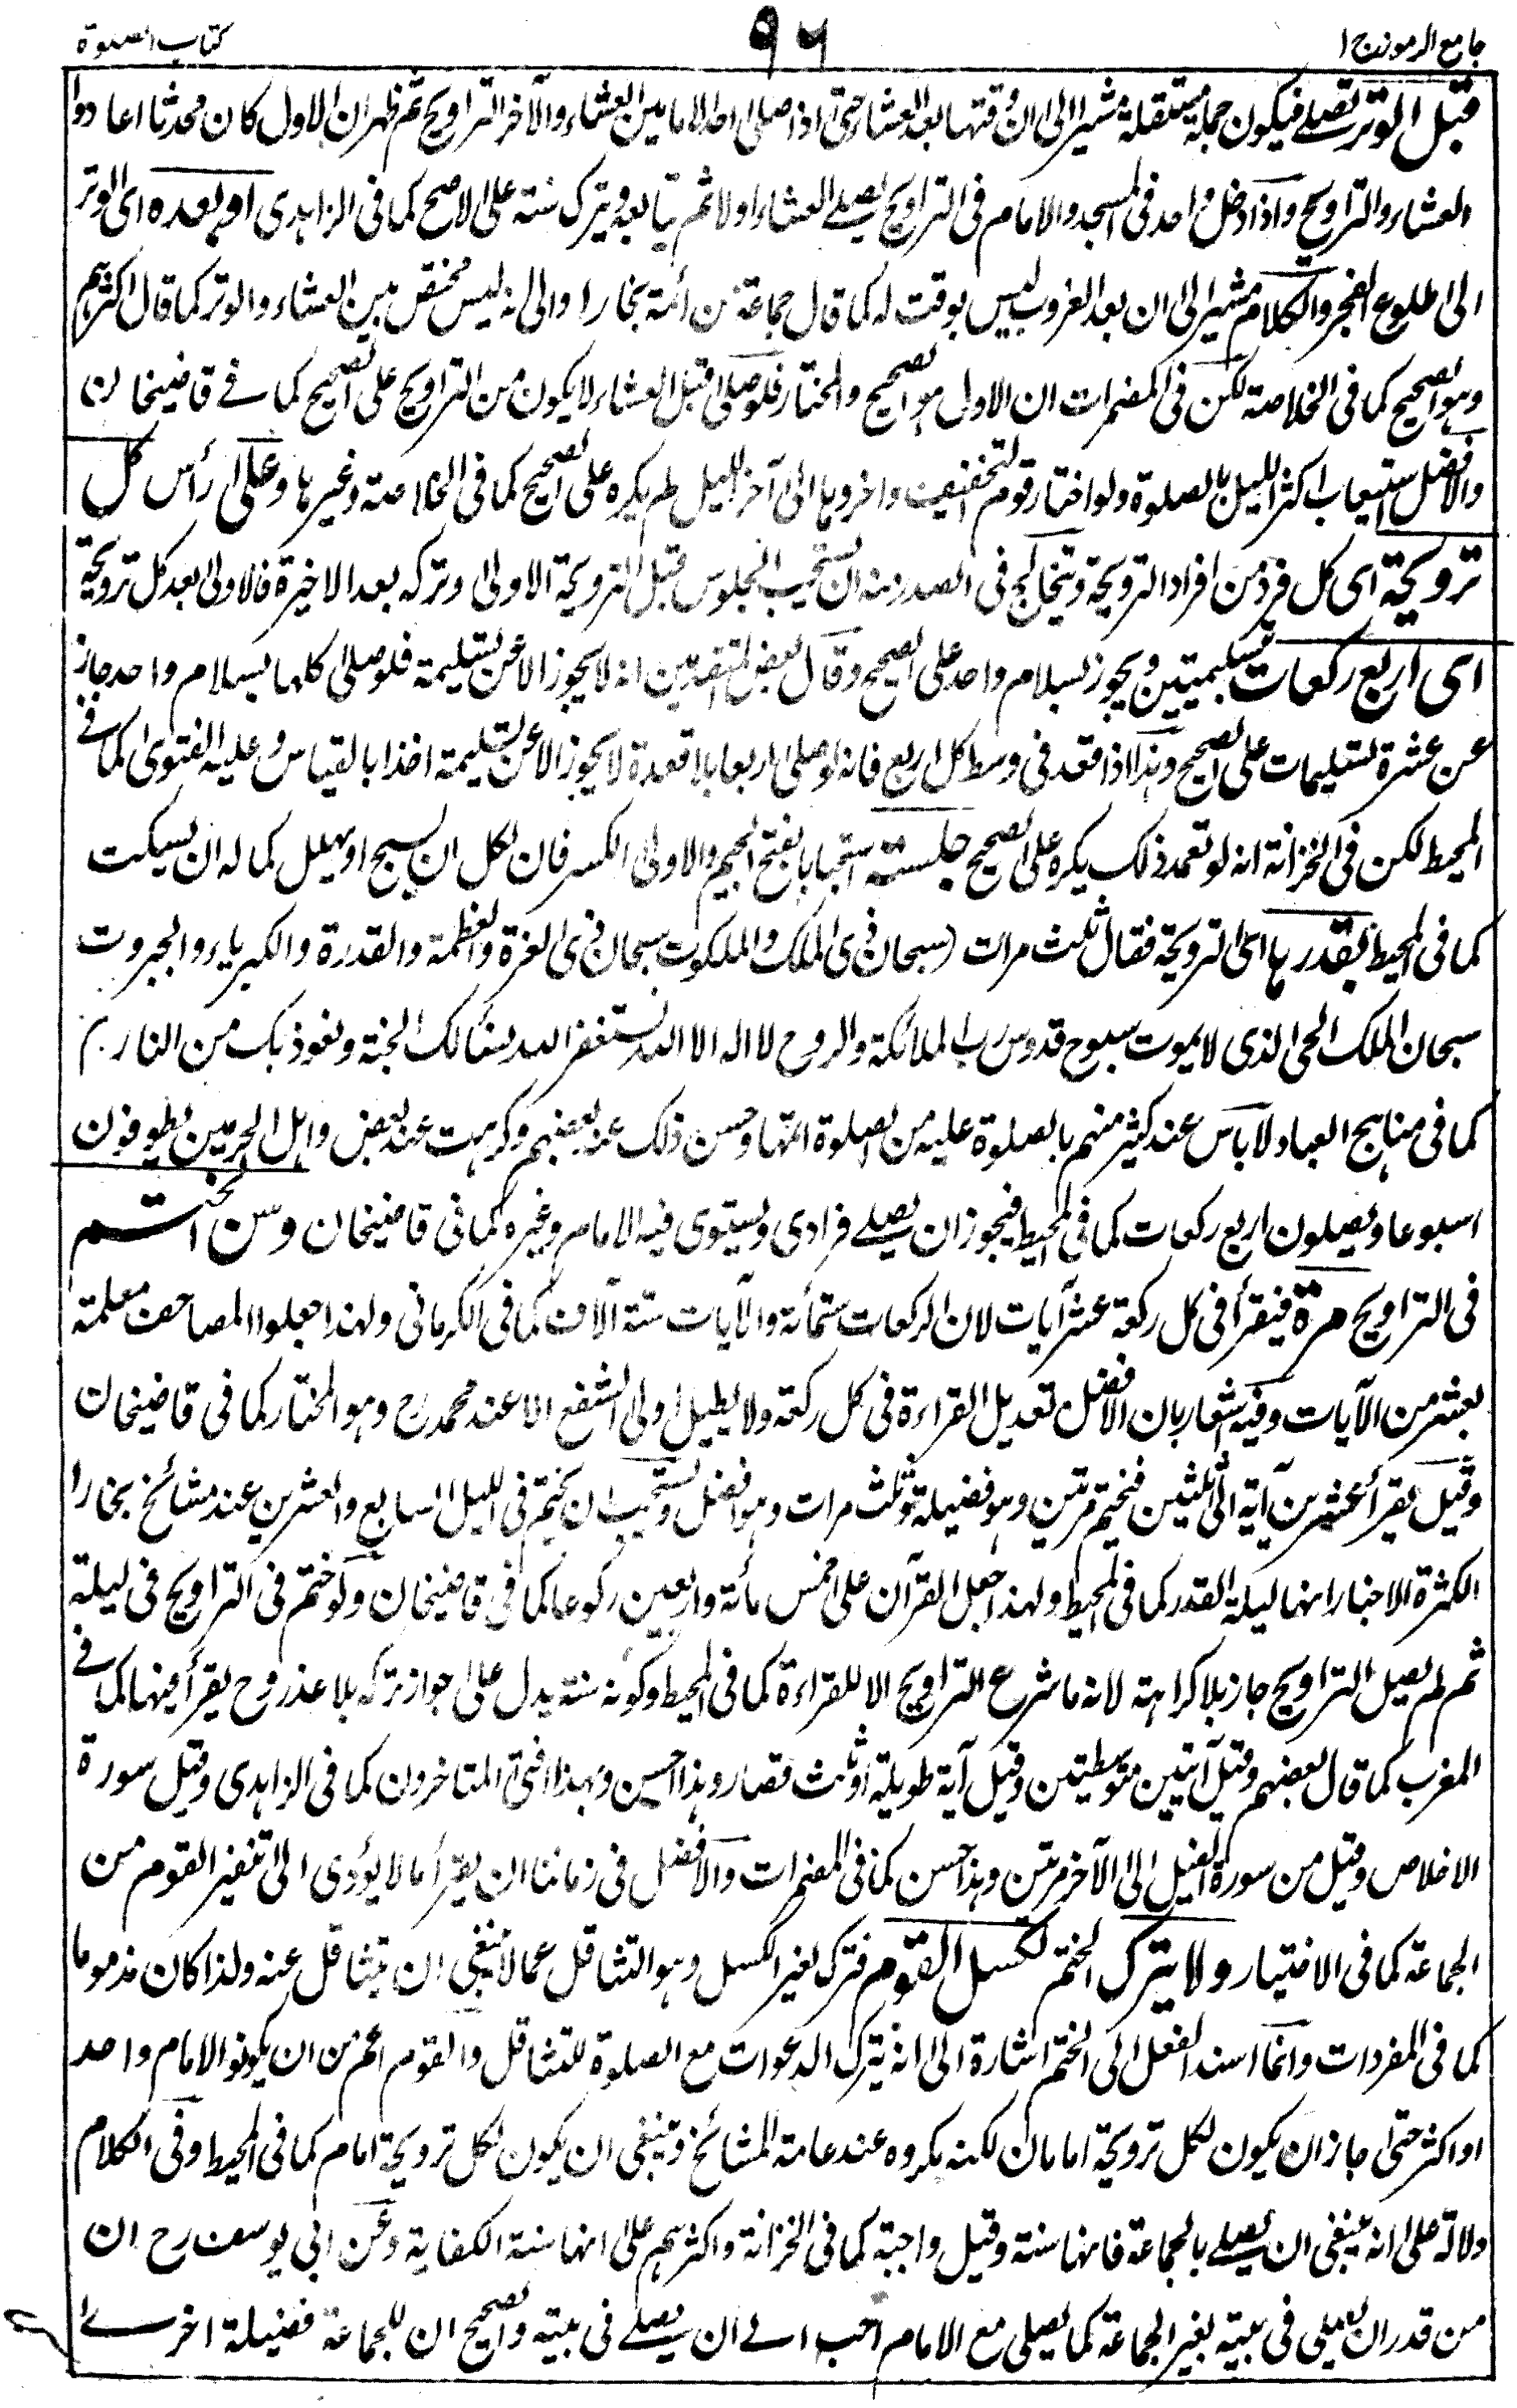 جامع الرموز ج ١
٩٦
كتاب الصلوة
قبل الوتر يصلے فيكون جملة مستقلة مشيرا الى ان وقتها بعد العشاء حتى اذا صلى احد الامامين العشاء والآخر التراويح ثم ظهر ان الاول كان محدثا اعادوا
العشاء والتراويح واذا دخل واحد فى المسجد والامام فى التراويح يصلے العشاء اولا ثم يتابعه ويترك سنته على الاصح كما فى الزاهدى او بعده اى الوتر
الى اطلوع الفجر والكلام مشير الى ان بعد الغروب ليس بوقت له كما قال جماعة من ائمة بخارا والى انه ليس مختص بين العشاء والوتر كما قال اكثرهم
وهو الصحيح كما فى الخلاصة لكن فى المضمرات ان الاول هو الصحيح والمختار فلو صلى قبل العشاء لا يكون من التراويح على الصحيح كما فے قاضيخان
والافضل استيعاب اكثر الليل بالصلوة ولو اختار قوم التخفيف واخروها الى آخر الليل لم يكره على الصحيح كما فى الخلاصة وغيرها وعلى رأس كل
ترويحة اى كل فرد من افراد الترويحة ويتخالج فى الصدر منه ان يستحب الجلوس قبل الترويحة الاولى وتركه بعد الاخيرة فالاولى بعد كل ترويحة
اى اربع ركعات بتسليمتين ويجوز بسلام واحد على الصحيح وقال بعض المتقدمين انه لا يجوز الا عن تسليمة فلو صلى كلها بسلام واحد جاز
عن عشرة تسليمات على الصحيح وهذا اذا قعد فى وسط كل اربع فانه لو صلى اربعا بلا قعدة لا يجوز الا عن تسليمة اخذا بالقياس وعليه الفتوى كما فے
المحيط لكن فى الخزانة انه لو تعمد ذلك يكره على الصحيح جلسته استحبابا بفتح الجيم والاولى الكسر فان لكل ان يسبح او يهلل كما له ان يسكت
كما فى المحيط بقدرها اى الترويحة فقال ثلث مرات (سبحان ذى الملك والملكوت سبحان ذى العزة والعظمة والقدرة والكبرياء والجبروت
سبحان الملك الحى الذى لا يموت سبوح قدوس رب الملائكة والروح لا اله الا الله نستغفر الله نسألك الجنة ونعوذ بك من النار)
كما فى مناهج العباد لا باس عند كثير منهم بالصلوة عليه من الصلوة التها وحسن ذلك عند بعضهم وكرهت عند بعض واهل الحرمين يطوفون
اسبوعا ويصلون اربع ركعات كما فى المحيط فيجوز ان يصلے فرادى ويستوى فيه الامام وغيره كما فى قاضيخان وسن الختم
فى التراويح مرة فيقرأ فى كل ركعة عشر آيات لان الركعات ستمائة والآيات ستة آلاف كما فى الكرمانى ولهذا جعلوا المصاحف معلمة
بعشر من الآيات وفيه اشعار بان الافضل تعديل القراءة فى كل ركعة ولا يطيل اولى الشفع الا عند محمد رح وهو المختار كما فى قاضيخان
وقيل يقرأ عشرين آية الى ثلثين فيختم مرتين وهو فضيلة وثلث مرات وهو افضل ويستحب ان يختم فى الليل السابع والعشرين عند مشائخ بخارا
الكثرة الاخبار انها ليلة القدر كما فى المحيط ولهذا جعل القرآن على خمس مائة واربعين ركوعا كما فى قاضيخان ولو ختم فى التراويح فى ليلة
ثم لم يصل التراويح جاز بلا كراهة لانه ما شرع التراويح الا للقراءة كما فى المحيط وكونه سنة يدل على جواز تركه بلا عذر وح يقرأ فيها كما فے
المغرب كما قال بعضهم وقيل آيتين متوسطتين وقيل آية طويلة او ثلث قصار وهذا حسن وبهذا افتى المتاخرون كما فى الزاهدى وقيل سورة
الاخلاص وقيل من سورة الفيل الى الآخر مرتين وهذا حسن كما فى المضمرات والافضل فى زماننا ان يقرأ ما لا يؤدى الى تنفير القوم من
الجماعة كما فى الاختيار ولا يترك الختم لكسل القوم فترك لغير الكسل وهو التثاقل عما لا ينبغى ان يتثاقل عنه ولذا كان مذموما
كما فى المفردات وانما اسند الفعل الى الختم اشارة الى انه يترك الدعوات مع الصلوة للتثاقل والقوم اعم من ان يكونوا لامام واحد
او اكثر حتى جاز ان يكون لكل ترويحة امامان لكنه مكروه عند عامة المشائخ وينبغى ان يكون لكل ترويحة امام كما فى المحيط وفى الكلام
دلالة على انه ينبغى ان يصلے بالجماعة فانها سنة وقيل واجبة كما فى الخزانة واكثرهم على انها سنة الكفاية وعن ابى يوسف رح ان
من قدر ان يصلى فى بيته بغير الجماعة كما يصلى مع الامام احب الے ان يصلے فى بيته والصحيح ان للجماعة فضيلة اخرے